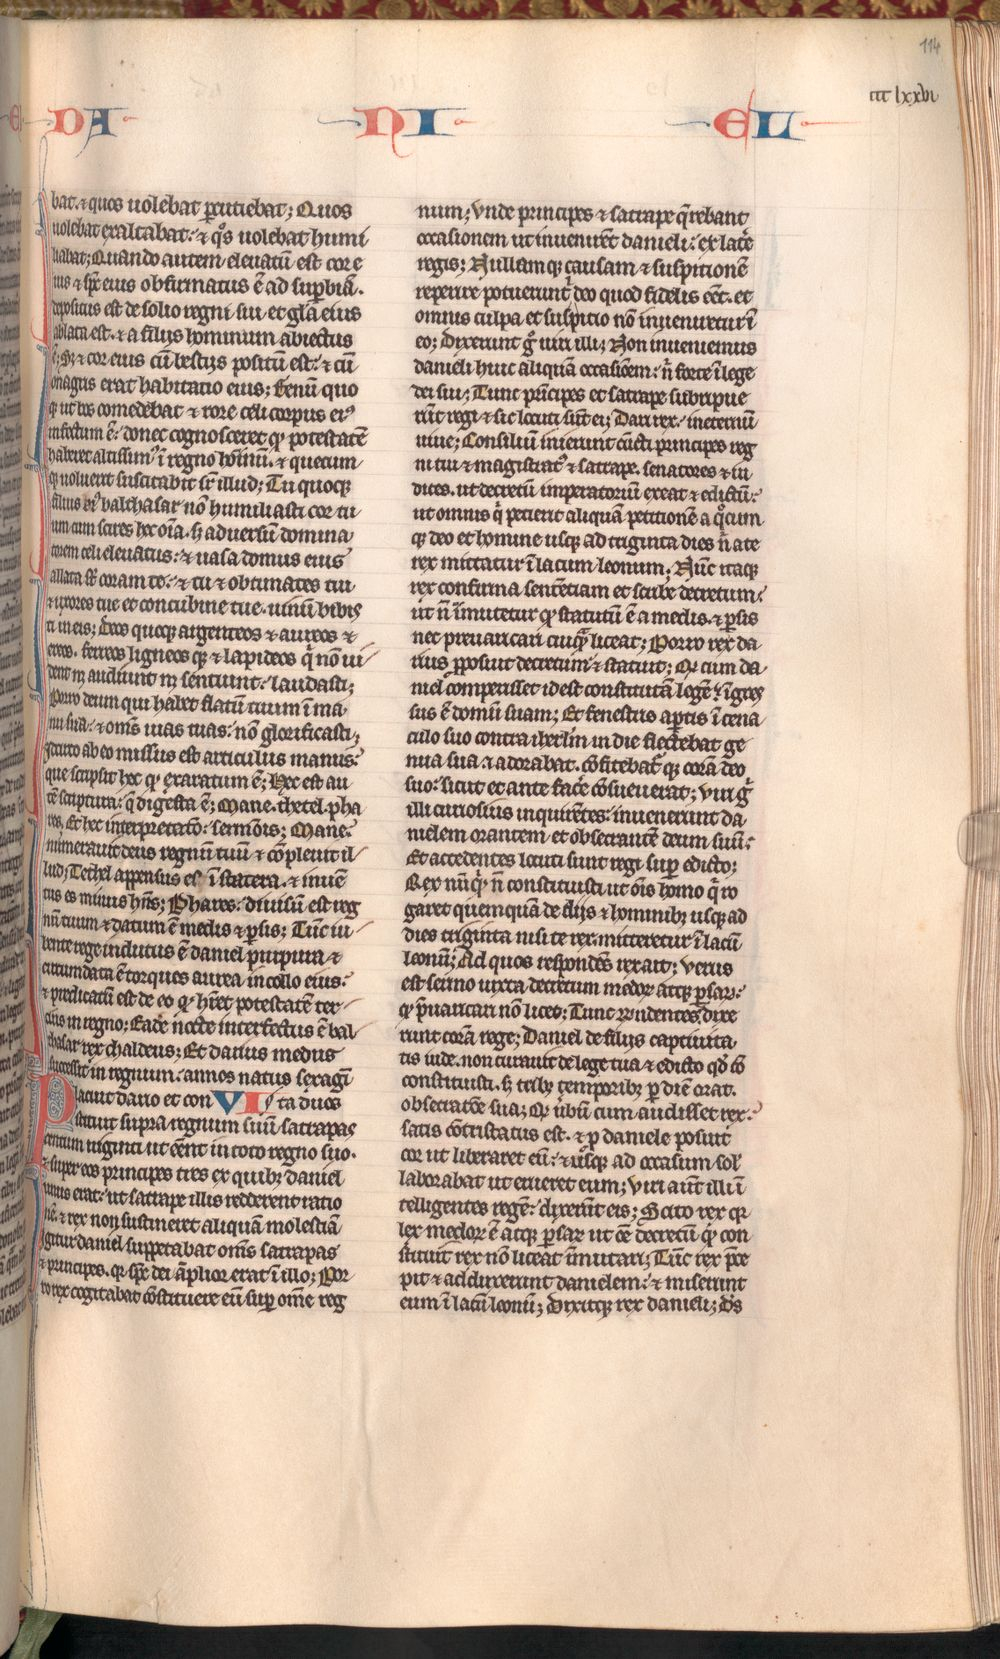 114
ccc lxxvi
DA NI EL
bat. ⁊ quos uolebat ꝑcutiebat; Quos
uolebat exaltabat: ⁊ q̊s uolebat humi
liabat; Quando autem eleuatū est cor e
ius ⁊ sp̄c eius obfirmatus ē ad suꝑbiā.
depositus est de solio regni sui et glā eius
ablata est. ⁊ a filijs hominum abiectus
ē; Sꝫ ⁊ cor eius cū bestijs positū est: ⁊ cū
onagris erat habitatio eius; fenū quo
qꝫ ut bos comedebat ⁊ rore celi corpus ei⁹
infectum ē: donec cognosceret qꝫ potestatē
haberet altissim⁹ ī regno hoīnū. ⁊ quecum
qꝫ uoluerit suscitabit sr̄ illud; Tu quoqꝫ
filius ei⁹ balthasar nō humiliasti cor tu
um cum scires hec oīa. sꝫ aduersū domina
torem celi eleuatus: ⁊ uasa domus eius
allata sūt coram te: ⁊ tu ⁊ obtimates tui
⁊ uxores tue et concubine tue. uinū bibis
ti in eis; Deos quoqꝫ argenteos ⁊ aureos ⁊
ereos. ferreos ligneos qꝫ ⁊ lapideos q̄ nō ui
dent nꝫ audiunt nꝫ sentiunt: laudasti;
Porro deum qui habet flatū tuum ī ma
nu sua: ⁊ om̄s uias tuas: nō glorificasti;
Idcirco ab eo missus est articulus manus:
que scripsit hec qꝫ exaratum ē; Hec est au
tē scriptura: q̄ digesta ē; Mane. thetel. pha
res. Et hec interpretatō: sermōis; Mane:
numerauit deus regnū tuū ⁊ cōpleuit il
lud; Techel appensus es ī statera. ⁊ inuē
tus es minus hn̄s; Phares: diuisū est reg
nū tuum ⁊ datum ē medis ⁊ ꝑsis; Tūc iu
bente rege indutus ē daniel purpura ⁊
circumdata ē torques aurea in collo eius:
⁊ predicatū est de eo qꝫ hr̄et potestatē ter
cius in regno; Eadē nocte interfectus ē bal
thasar rex chaldeus; Et darius medus
successit in regnum: annos natus sexagī
Placuit dario et con VI ta duos
stituit supra regnum suū satrapas
centum uiginti ut eēnt in toto regno suo.
⁊ super eos principes tres ex quibꝫ daniel
unus erat: ut satrape illis redderent ratio
nē. ⁊ rex non sustineret aliquam molestiā
Igitur daniel suꝑabat om̄s satrapas
⁊ principes. qꝫ sp̄c dei āplior erat ī illo; Por
ro rex cogitabat cōstituere eū suꝑ om̄e reg
num; Vnde principes ⁊ satrape q̄rebant
occasionem ut inuenirēt danieli: ex latē
regis; Nullamqꝫ causam ⁊ suspitionē
reperire potuerunt; eo quod fidelis eēt. et
omnis culpa et suspitio nō inueniretur ī
eo; Dixerunt gͦ uiri illi; Non inueniemus
danieli huic aliquā occasiōem: n̄ forte ī lege
dei sui; Tunc prīcipes et satrape subripue
rūt regi ⁊ sic locuti sūt ei; Dari rex. ineternū
uiue; Consiliū inierunt cūcti principes reg
ni tui ⁊ magistrat⁹ ⁊ satrape. senatores ⁊ iu
dices. ut decretū imperatoriū exeat ⁊ edictū:
ut omnis q̄ petierit aliquā petitionē a q̊cum
qꝫ deo et homine usqꝫ ad triginta dies n̄ a te
rex mittatur ī lacum leonum; Nūc itaqꝫ
rex confirma sentētiam et scribe decretum:
ut n̄ īmutetur qꝫ statutū ē a medis. ⁊ ꝑsis
nec preuaricari cuiqͣꝫ liceat; Porro rex da
rius ꝓposuit decretum ⁊ statuit; Qꝫ cum da
niel comperisset id est constitutā legē: īgres
sus ē domū suam; Et fenestris aꝑtis ī cena
culo suo contra iherl̄m in die flectebat ge
nua sua ⁊ adorabat. cōfitebat͛ qꝫ corā deo
suo: sicut et ante facē cōsueuerat; Viri gͦ
illi curiosius inquirētes: inuenerunt da
nielem orantem et obsecrantē deum suū:
Et accedentes locuti sunt regi suꝑ edicto;
Rex nūqͥd n̄ constituisti ut ōis homo q̄ ro
garet quemquā de dijs ⁊ hominibꝫ usqꝫ ad
dies triginta nisi te rex. mitteretur ī lacū
leonū; Ad quos respondēs rex ait; Verus
est sermo iuxta decretum medoꝝ atqꝫ ꝑsaꝝ:
qꝫ p̄uaricari nō licet; Tunc rn̄dentes dixe
runt corā rege; Daniel de filijs captiuita
tis iude. non curauit de lege tua ⁊ edicto qd̄ cō
constituisti. sꝫ tribꝫ temporibꝫ ꝑ diē orat.
obsecratōe sua; Qꝫ ūbū cum audisset rex:
satis cōtristatus est. ⁊ ꝓ daniele posuit
cor ut liberaret eū: ⁊ usqꝫ ad occasum sol̄
laborabat ut erueret eum; Viri aūt illi ī
telligentes regē: dixerūt eis; Scito rex qꝫ
lex medoꝝ ē atqꝫ ꝑsaꝝ ut ōe decretū qꝫ con
stituit rex nō liceat īmutari; Tūc rex p̄ce
pit ⁊ adduxerunt danielem: ⁊ miserunt
eum ī lacū leonū; Dixitqꝫ rex danieli; Ds̄